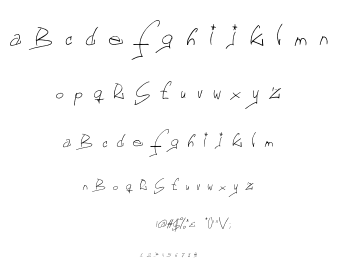 a B c d e f g h i j k l m n
o p q R S t u v w x y z
a B c d e f g h i j k l m
n B o q R S t u v w x y z
1 2 3 4 5 6 7 8